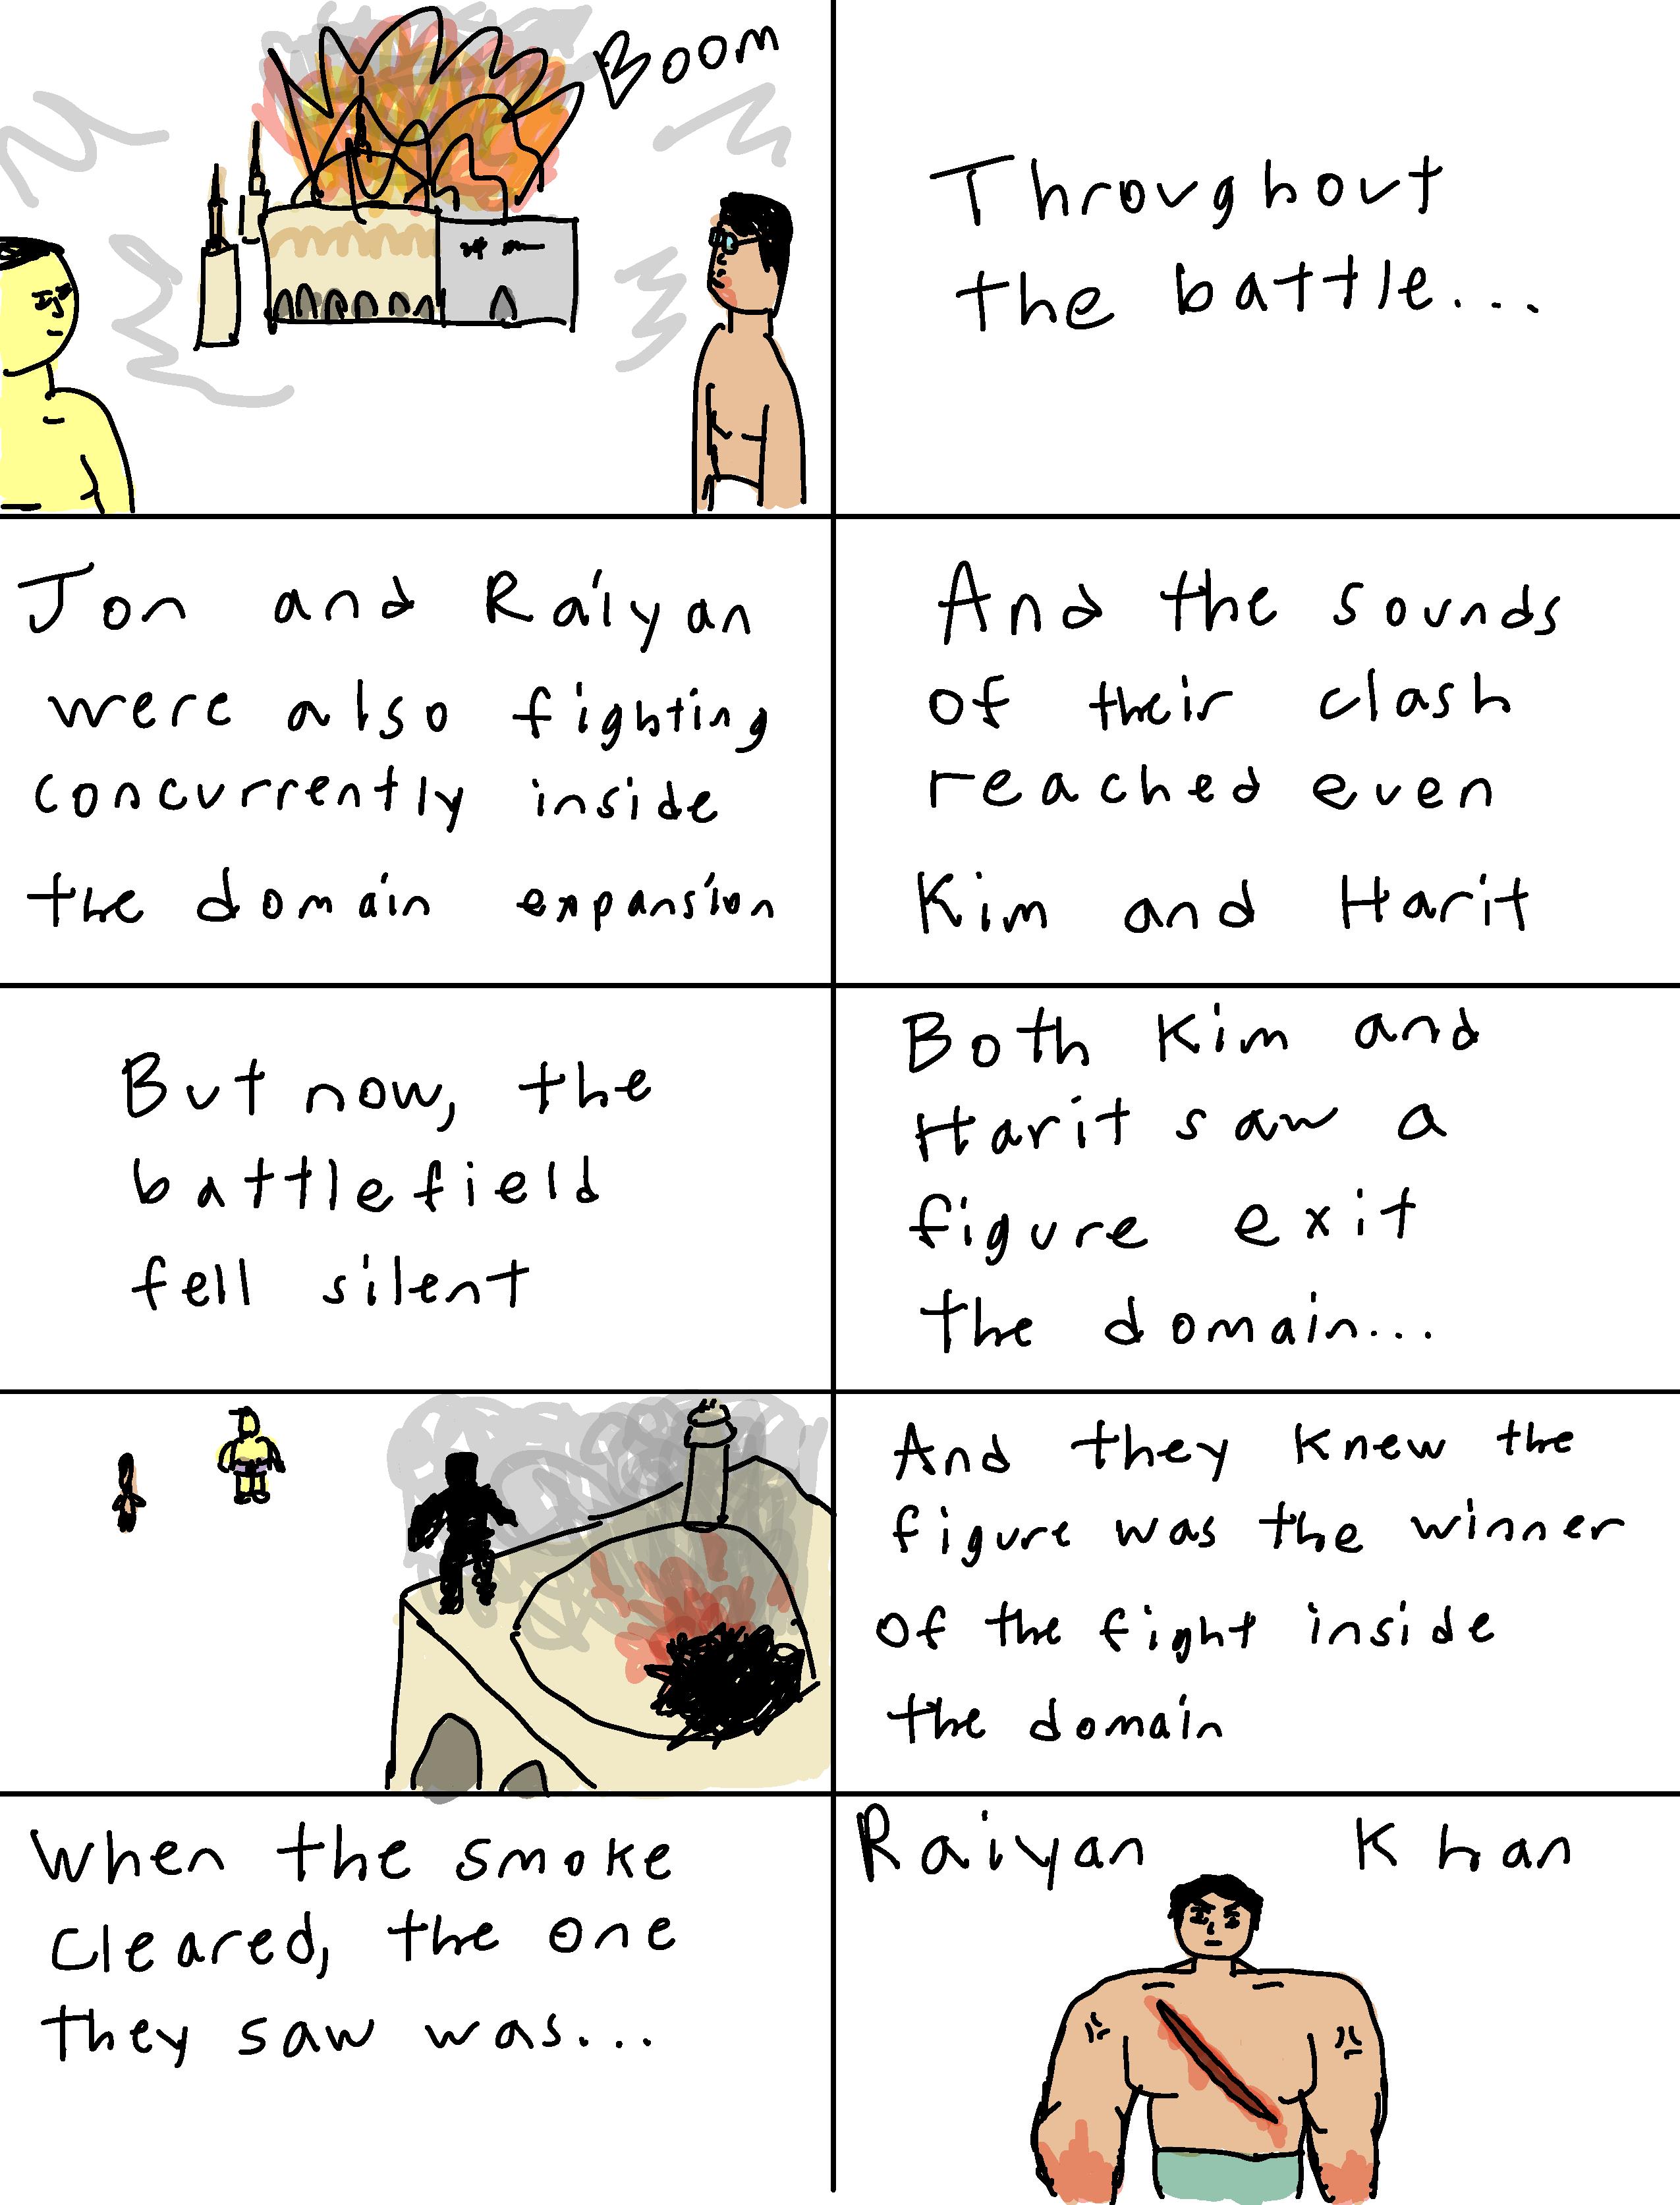 Boom
Throughout
the battle...
Jon and Raiyan
were also fighting
concurrently inside
the domain expansion
And the sounds
of their clash
reached even
Kim and Harit
But now, the
battlefield
fell silent
Both Kim and
Harit saw a
figure exit
the domain...
And they knew the
figure was the winner
of the fight inside
the domain
When the smoke
cleared, the one
they saw was...
Raiyan Khan